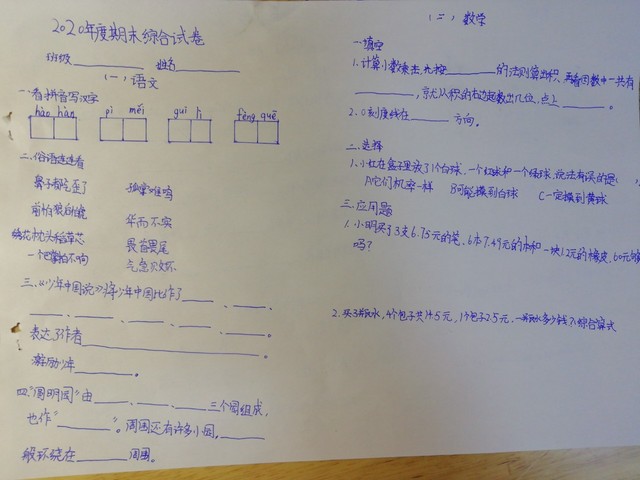 2020年度期末综合试卷
班级 姓名
(一)语文
一.看拼音写汉字
hào hàn pì měi guī lì fēng quē
二.俗语连连看
鼻子都气歪了 孤掌难鸣
前怕狼后怕虎 华而不实
绣花枕头稻草芯 畏首畏尾
一个巴掌拍不响 气急败坏
三.《少年中国说》将少年中国比作了 、 、
、 、 、 、 。
表达了作者 。
激励少年 。
四."圆明园"由 、 、 三个园组成,
也作" "。周围还有许多小园,
般环绕在 周围。
(二)数学
一.填空
1.计算小数乘法,先按 的法则算出积,再看因数中一共有
,就从积的右边起数出几位,点上 。
2.0刻度线在 方向。
二.选择
1.小红在盒子里放了1个白球,一个红球和一个绿球,说法有误的是(
A它们机率一样 B可能摸到白球 C一定摸到黄球
三.应用题
1.小明买了3支6.75元的笔,6本7.49元的本和一块1.2元的橡皮,60元够
吗?
2.买3瓶水,4个包子共14.5元,1个包子2.5元,一瓶水多少钱?综合算式